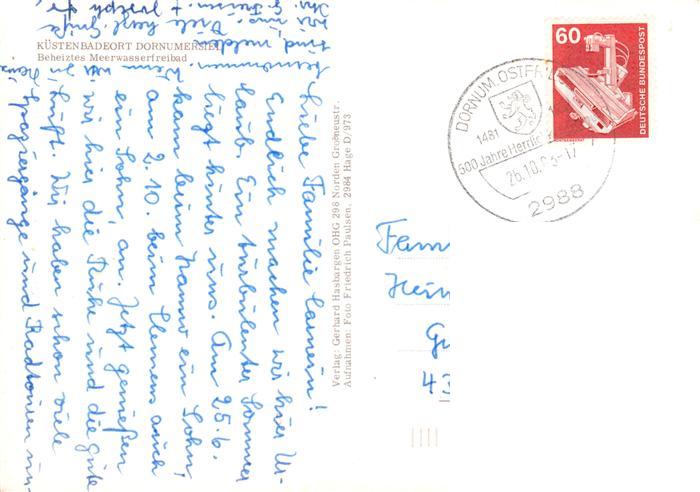 KÜSTENBADEORT DORNUMERSIEL
Beheiztes Meerwasserfreibad
Liebe Familie
Endlich machen wir hier Ur-
laub. Ein turbulenter Sommer
liegt hinter uns. Am 25.6.
kam beim Hanno ein Sohn,
am 2.10. beim Clemens auch
ein Sohn, an. Jetzt genießen
wir hier die Ruhe und die gute
Luft. Wir haben schon viele
Spaziergänge und Radtouren
Viele herzl. Grüße
Verlag: Gerhard Hasbargen OHG 298 Norden Große
Aufnahmen: Foto Friedrich Paulsen, 2984 Hage D/973
60
DEUTSCHE BUNDESPOST
DORNUM, OSTFR
1481
500 Jahre Herrlich
26.10.
-17
2988
Fam
Hein
G
43